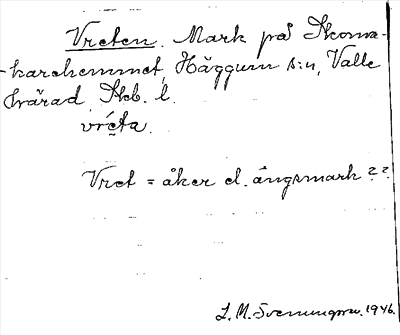 Vreten. Mark på Skoma-
karehemmet, Häggum s:n, Valle
härad, Skb. l.
vréta.
Vret = åker el. ängsmark??
L. M. Svenungsson. 1946.